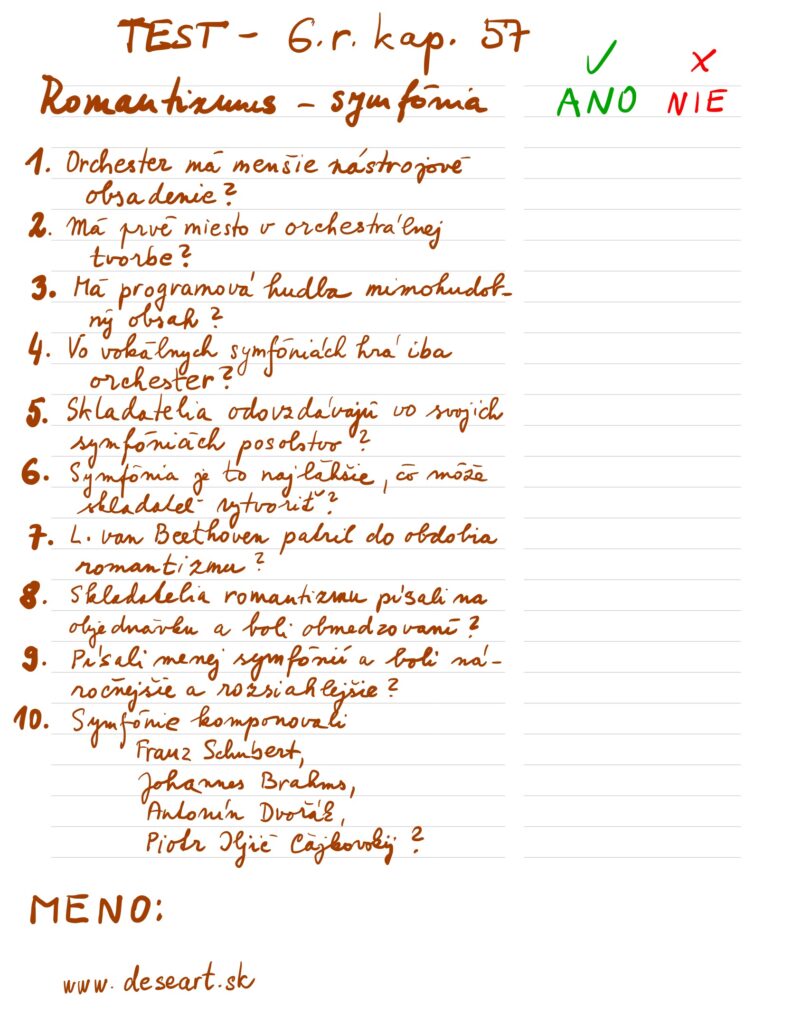 TEST - 6.r. kap. 57
✓ ✗
Romantizmus - symfónia ANO NIE
1. Orchester má menšie nástrojové
obsadenie?
2. Má prvé miesto v orchestrálnej
tvorbe?
3. Má programová hudba mimohudob-
ný obsah?
4. Vo vokálnych symfóniách hrá iba
orchester?
5. Skladatelia odovzdávajú vo svojich
symfóniách posolstvo?
6. Symfónia je to najľahšie, čo môže
skladateľ vytvoriť?
7. L. van Beethoven patril do obdobia
romantizmu?
8. Skladatelia romantizmu písali na
objednávku a boli obmedzovaní?
9. Písali menej symfónií a boli ná-
ročnejšie a rozsiahlejšie?
10. Symfónie komponovali
Franz Schubert,
Johannes Brahms,
Antonín Dvořák,
Piotr Iljič Čajkovskij?
MENO:
www.deseart.sk